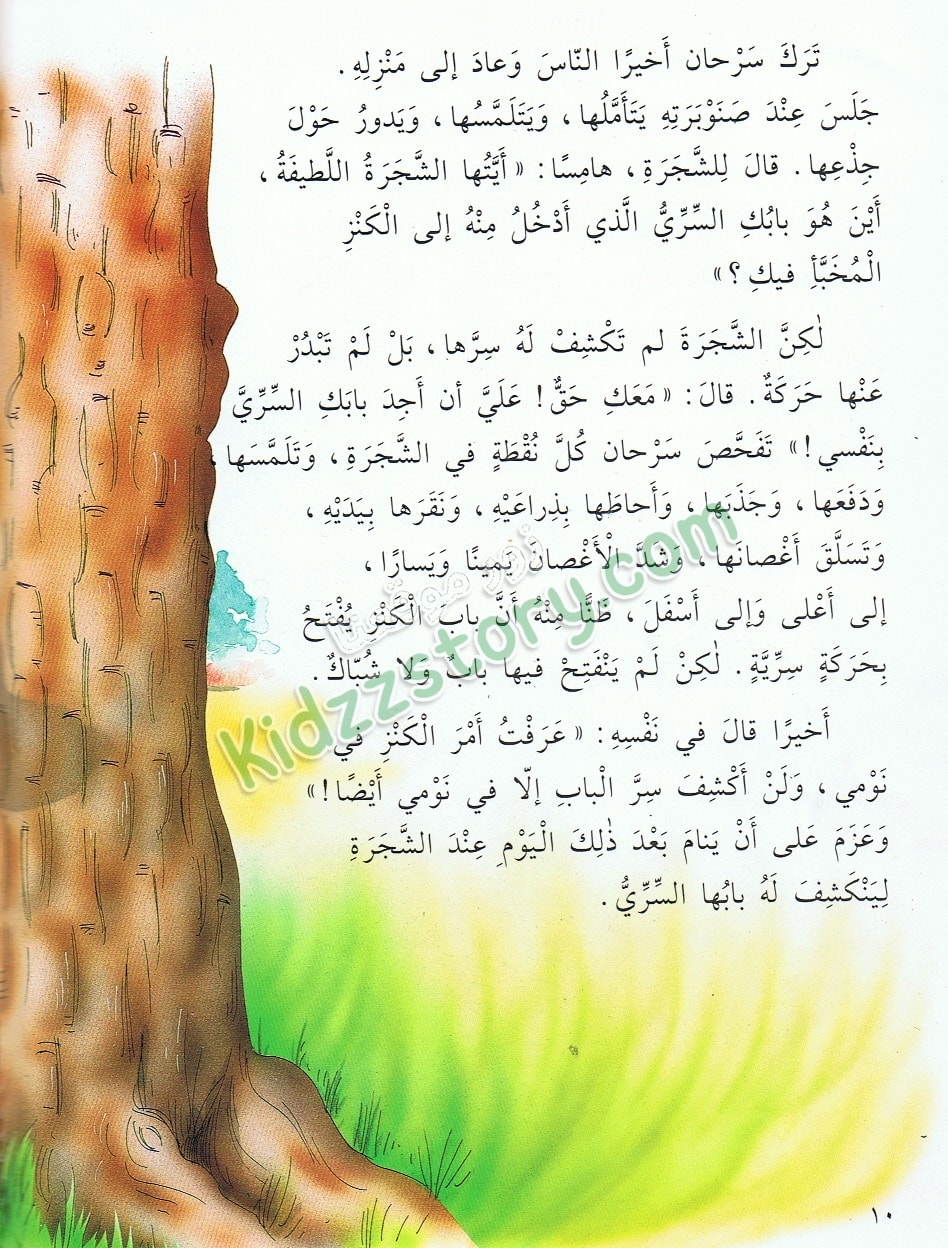 تَرَكَ سَرْحان أَخيرًا النّاسَ وَعادَ إلى مَنْزِلِهِ .
جَلَسَ عِنْدَ صَنَوْبَرَتِهِ يَتَأَمَّلُها ، وَيَتَلَمَّسُها ، وَيَدورُ حَوْلَ
جِذْعِها . قالَ لِلشَّجَرَةِ ، هامِسًا : « أَيَّتُها الشَّجَرَةُ اللَّطيفَةُ ،
أَيْنَ هُوَ بابُكِ السِّرِّيُّ الَّذي أَدْخُلُ مِنْهُ إلى الْكَنْزِ
الْمُخَبَّأِ فيكِ ؟ »
لٰكِنَّ الشَّجَرَةَ لم تَكْشِفْ لَهُ سِرَّها ، بَلْ لَمْ تَبْدُرْ
عَنْها حَرَكَةٌ . قالَ : « مَعَكِ حَقٌّ ! عَلَيَّ أن أَجِدَ بابَكِ السِّرِّيَّ
بِنَفْسي ! » تَفَحَّصَ سَرْحان كُلَّ نُقْطَةٍ في الشَّجَرَةِ ، وَتَلَمَّسَها ،
وَدَفَعَها ، وَجَذَبَها ، وَأَحاطَها بِذِراعَيْهِ ، وَنَقَرَها بِيَدَيْهِ ،
وَتَسَلَّقَ أَغْصانَها ، وَشَدَّ الْأَغْصانَ يَمينًا وَيَسارًا ،
إلى أَعْلى وَإلى أَسْفَلَ ، ظَنًّا مِنْهُ أَنَّ بابَ الْكَنْزِ يُفْتَحُ
بِحَرَكَةٍ سِرِّيَّةٍ . لٰكِنْ لَمْ يَنْفَتِحْ فيها بابٌ وَلا شُبّاكٌ .
أَخيرًا قالَ في نَفْسِهِ : « عَرَفْتُ أَمْرَ الْكَنْزِ في
نَوْمي ، وَلَنْ أَكْشِفَ سِرَّ الْبابِ إلّا في نَوْمي أَيْضًا ! »
وَعَزَمَ عَلى أَنْ يَنامَ بَعْدَ ذٰلِكَ الْيَوْمِ عِنْدَ الشَّجَرَةِ
لِيَنْكَشِفَ لَهُ بابُها السِّرِّيُّ .
زوروا موقعنا
Kidzzstory.com
١٠